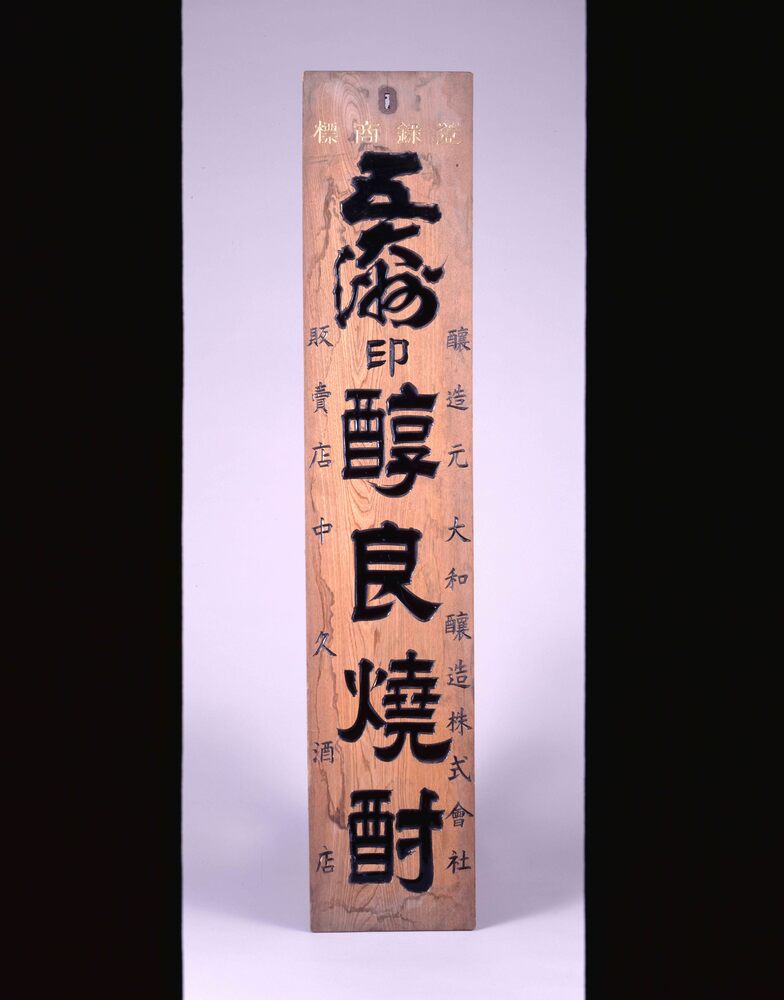 登録商標
五大洲
印
醇良燒酎
醸造元 大和醸造株式會社
販賣店 中久酒店